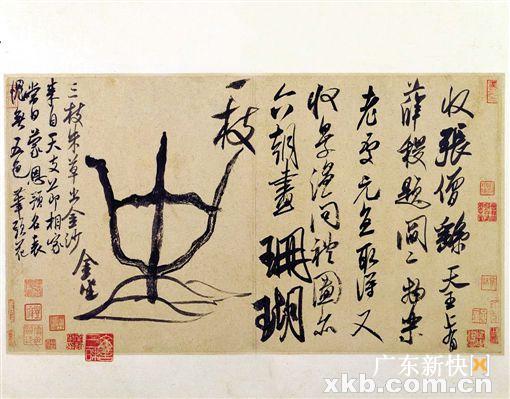 收張僧繇天王上有
薛稷題閻二物樂
老處元直取得又
收景溫問禮圖亦
六朝畫珊瑚
一枝
金坐
三枝朱草出金沙
來自天支節相家
當日蒙恩預名表
愧無五色筆頭花
广东新快
xkb.com.cn